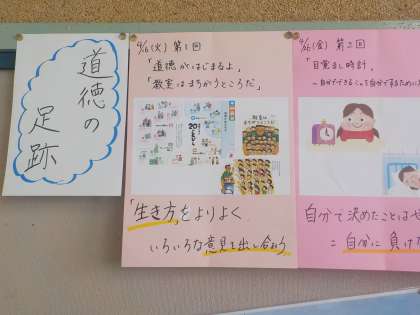 道徳の
足跡
4/16(火) 第1回
「道徳がはじまるよ」
「教室はまちがうところだ」
「生き方」をよりよく
いろいろな意見を出し合おう
4/26(金) 第2回
「目覚まし時計」
～自分でできることを自分でするために
自分で決めたことは
＝自分に負け